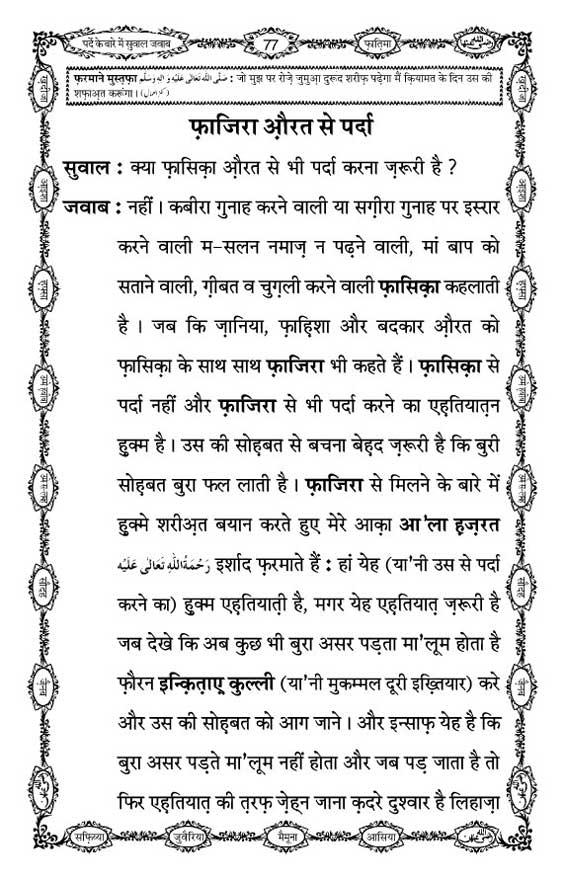 पर्दे के बारे में सुवाल जवाब
77
फ़ातिमा
फ़रमाने मुस्तफ़ा صَلَّى اللهُ تَعَالٰى عَلَيْهِ وَاٰلِهٖ وَسَلَّم : जो मुझ पर रोज़े जुमुआ़ दुरूद शरीफ़ पढ़ेगा मैं क़ियामत के दिन उस की
शफ़ाअ़त करूंगा।
फ़ाजिरा औ़रत से पर्दा
सुवाल : क्या फ़ासिक़ा औ़रत से भी पर्दा करना ज़रूरी है ?
जवाब : नहीं। कबीरा गुनाह करने वाली या सग़ीरा गुनाह पर इस्रार
करने वाली म-सलन नमाज़ न पढ़ने वाली, मां बाप को
सताने वाली, ग़ीबत व चुग़ली करने वाली फ़ासिक़ा कहलाती
है। जब कि ज़ानिया, फ़ाह़िशा और बदकार औ़रत को
फ़ासिक़ा के साथ साथ फ़ाजिरा भी कहते हैं। फ़ासिक़ा से
पर्दा नहीं और फ़ाजिरा से भी पर्दा करने का एह़तियात़न
हु़क्म है। उस की सोह़बत से बचना बेह़द ज़रूरी है कि बुरी
सोह़बत बुरा फल लाती है। फ़ाजिरा से मिलने के बारे में
हु़क्मे शरीअ़त बयान करते हुए मेरे आक़ा आ'ला ह़ज़रत
رَحْمَةُ اللهِ تَعَالٰى عَلَيْه इर्शाद फ़रमाते हैं : हां येह (या'नी उस से पर्दा
करने का) हु़क्म एह़तियाती़ है, मगर येह एह़तियात़ ज़रूरी है
जब देखे कि अब कुछ भी बुरा असर पड़ता मा'लूम होता है
फ़ौरन इन्क़िता़ए कुल्ली (या'नी मुकम्मल दूरी इख़्तियार) करे
और उस की सोह़बत को आग जाने। और इन्साफ़ येह है कि
बुरा असर पड़ते मा'लूम नहीं होता और जब पड़ जाता है तो
फिर एह़तियात़ की त़रफ़ ज़ेह्न जाना क़दरे दुश्वार है लिहाज़ा
सफ़िय्या
जुवैरिया
मैमूना
आसिया